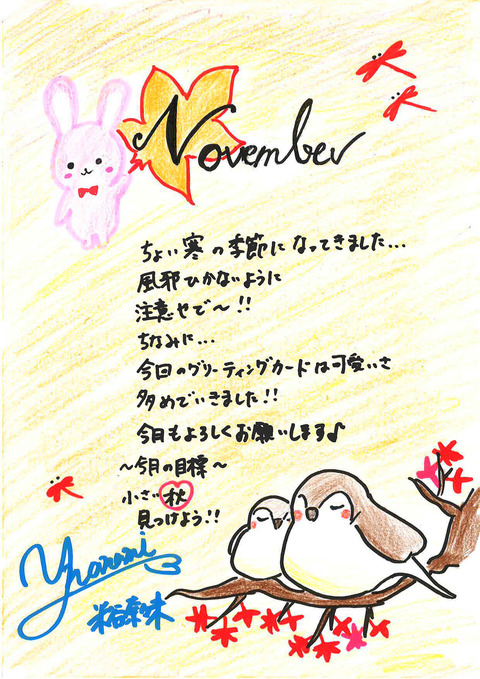 November
ちょい寒の季節になってきました...
風邪ひかないように
注意やで〜!!
ちなみに...
今回のグリーティングカードは可愛いさ
多めでいきました!!
今月もよろしくお願いします♪
〜今月の目標〜
小さい秋
見つけよう!!